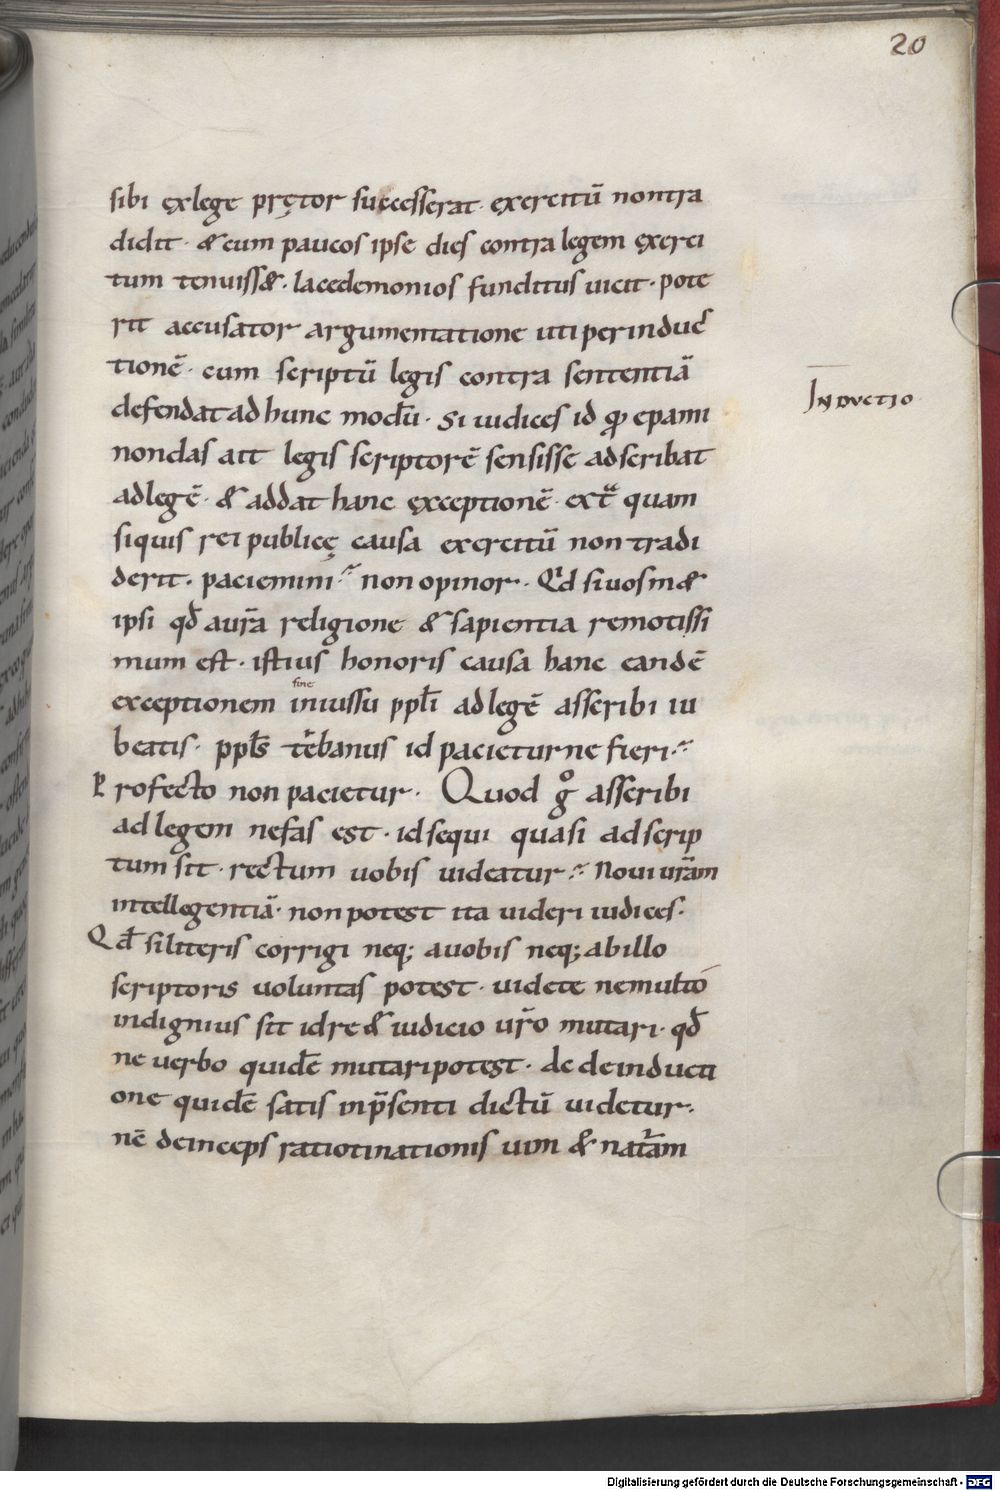 20
sibi ęxlege prętor successerat· exercitū nontra
didit· & cum paucos ipse dies contra legem ęxerci
tum tenuiss&· lacedemonios funditus uicit· pote
rit accusator argumentatione uti per induc̄
tionē· cum scriptū legis contra sententiā
defendat ad hunc modū· Si iudices id ꝙ epami
nondas ait legis scriptorē sensisse adscribat
adlegē· & addat hanc ęxceptionē· extᷓ quam
siquis rei publicę causa exercitū non tradi
derit· paciemini· non opinor· Qd̄ si uosm&
ipsi qd̄ aur̄a religione & sapientia remotissi
mum est· istius honoris causa hanc eandē
fine
exceptionem iniussu ppl̄i adlegē asscribi iu
beatis· ppl̄s tēbanus id pacieturne fieri·
Profecto non pacietur· Quod gͦ asscribi
ad legem nefas est· id sequi quasi adscrip
tum sit· rectum uobis uideatur· Noui ur̄am
intellegentiā· non potest ita uideri iudices·
Qd̄ si litteris corrigi neq; auobis neq; ab illo
scriptoris uoluntas potest· uidete ne multō
indignius sit id re & iudicio ur̄o mutari· qd̄
ne uerbo quidē mutari potest· ac de inducti
one quidē satis inp̄senti dictū uidetur·
nē deinceps ratiotinationis uim & nat̄am
Inductio
Digitalisierung gefördert durch die Deutsche Forschungsgemeinschaft - DFG